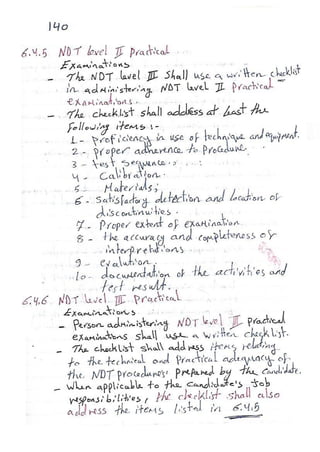 140
6.4.5 NDT level II practical
Examinations
- The NDT level III shall use a written checklist
in administering NDT level II practical
examinations.
- The checklist shall address at least the
following items :-
1- proficiency in use of technique and equipment.
2- proper adherence to procedure.
3- test sequence.
4- Calibration.
5- Materials;
6- satisfactory detection and location of
discontinuities.
7- Proper extent of examination.
8- the accuracy and completeness of
interpretations
9- evalution.
10- documentation of the activities and
test result.
6.4.6 NDT level III Practical
Examinations
- Person administering NDT level III practical
examinations shall use a written checklist.
- The checklist shall address items relating
to the technical and Practical adequacy of
the NDT procedures prepared by the candidate.
- when applicable to the candidate's job
responsibilities, the checklist shall also
address the items listed in 6.4.5